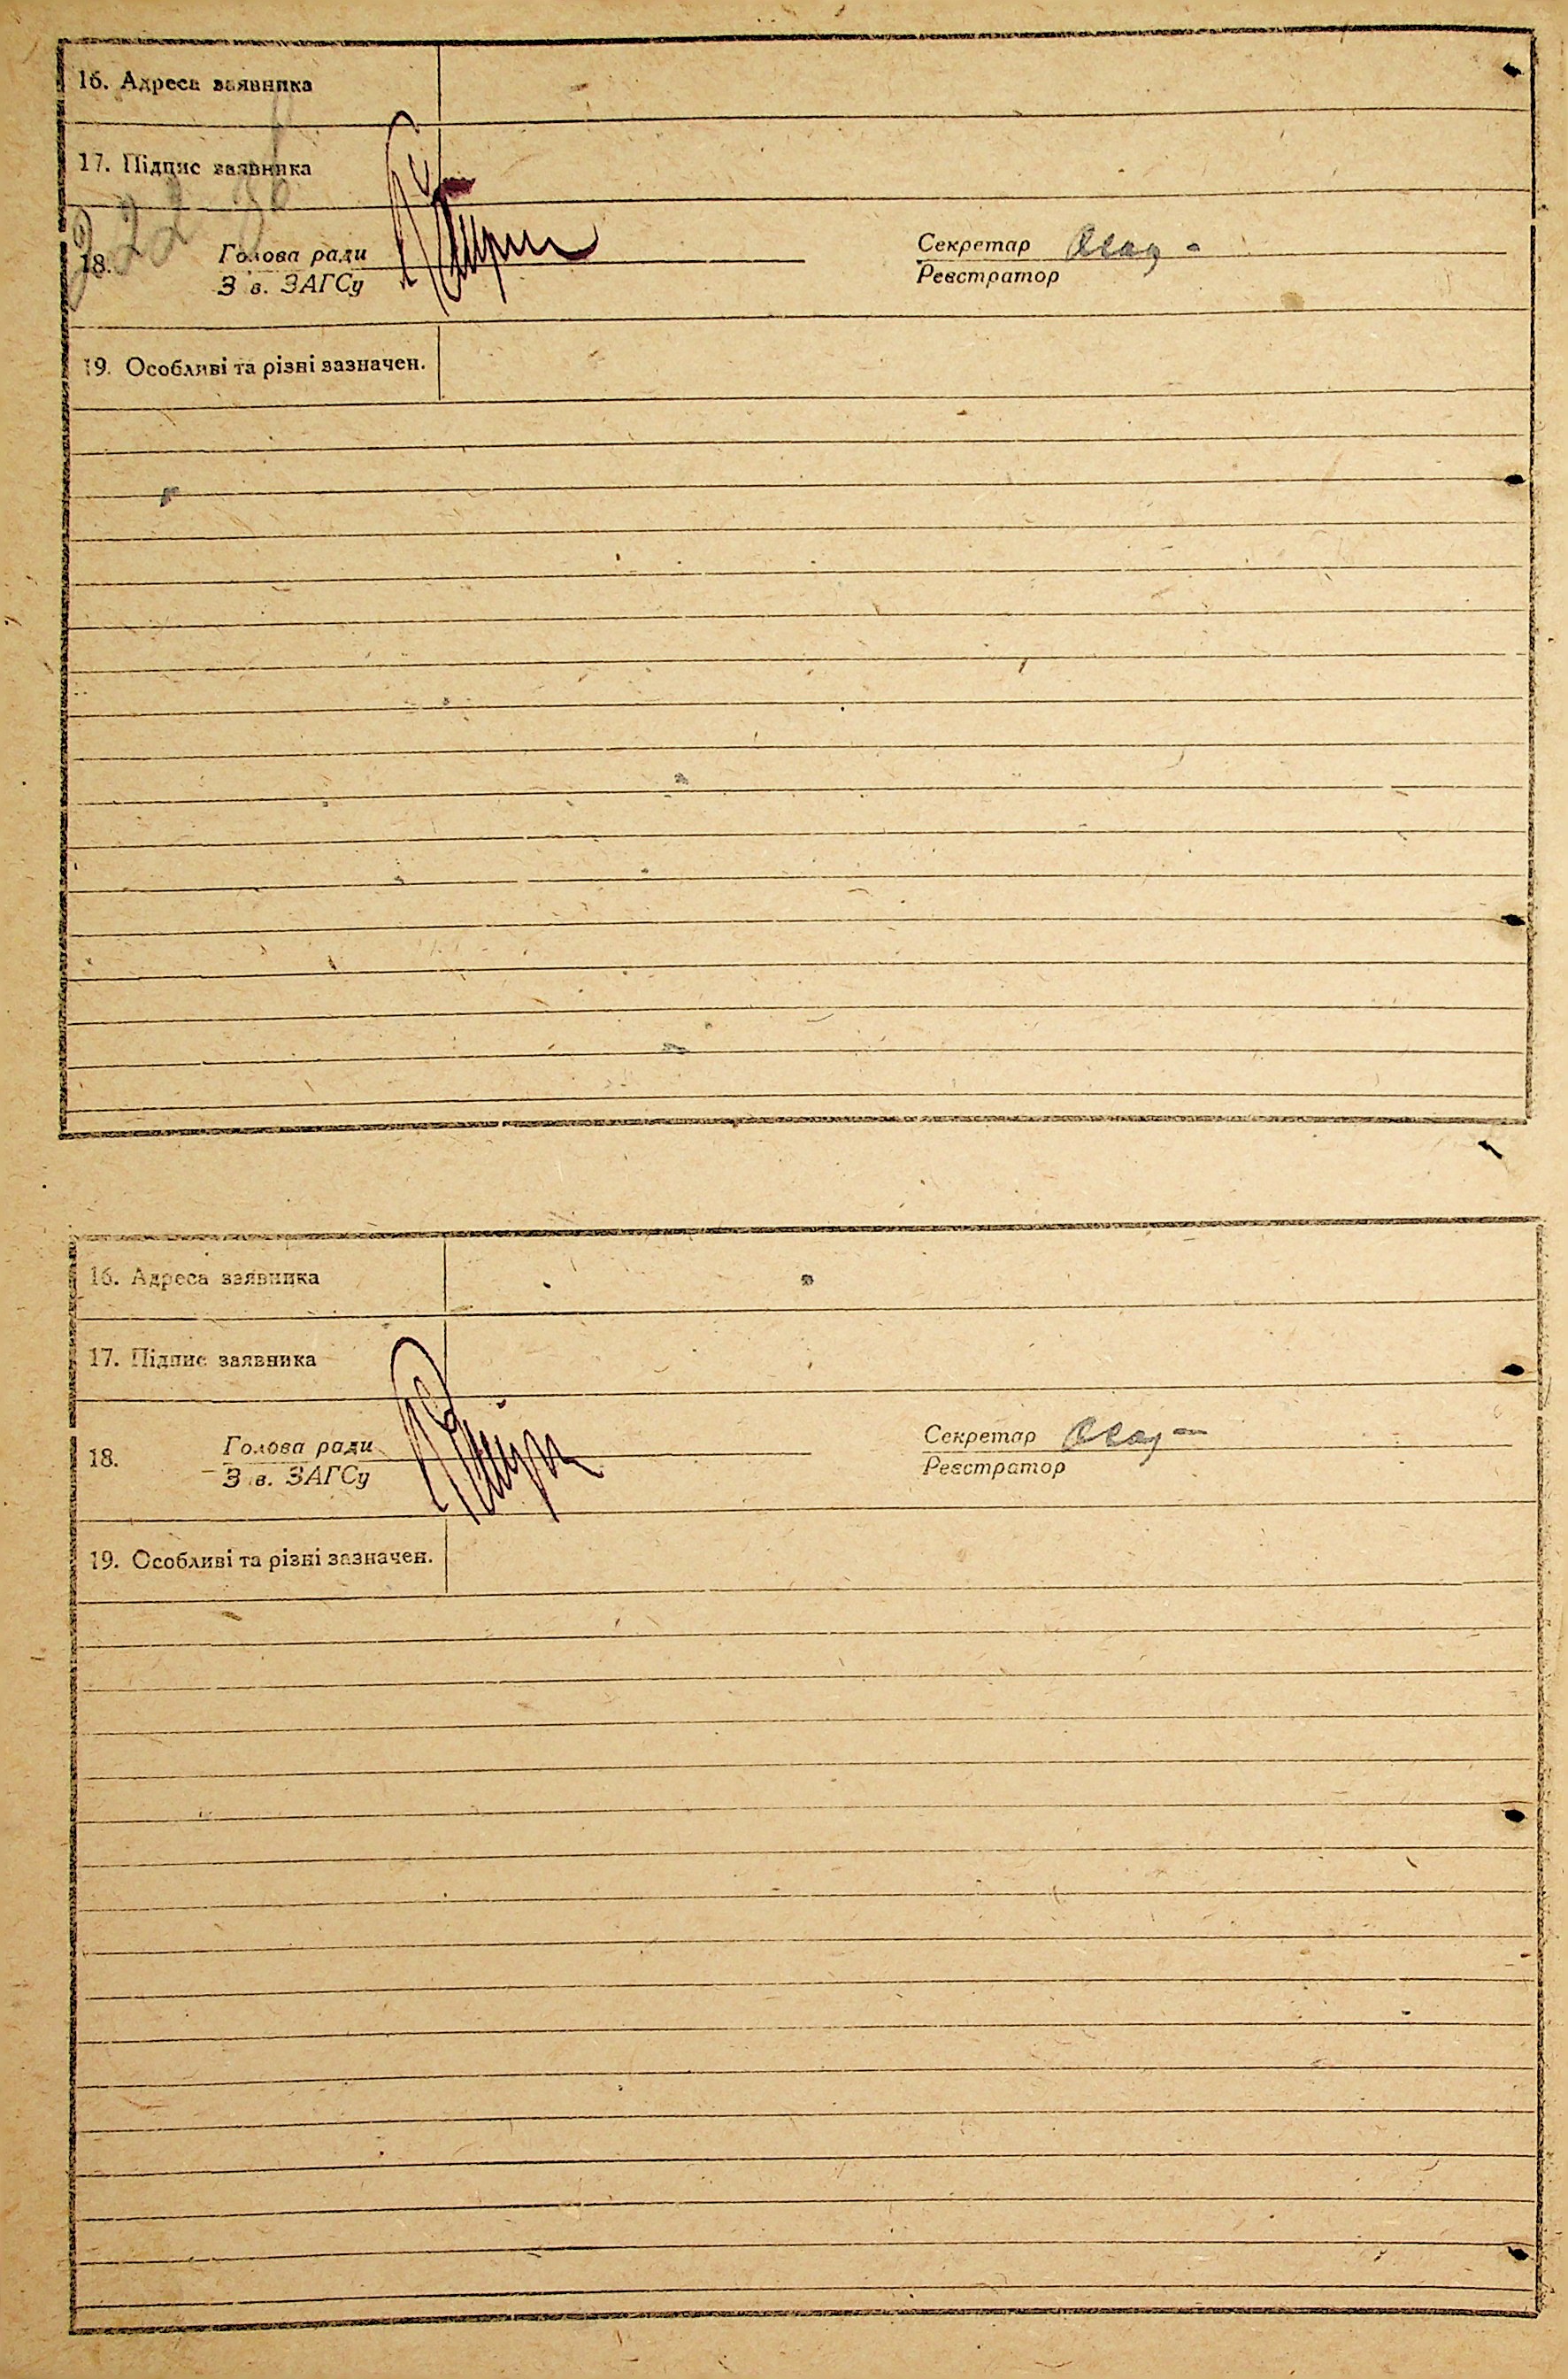 16. Адреса заявника
17. Підпис заявника
18. Голова ради Секретар
З в. ЗАГСу Реєстратор
19. Особливі та різні зазначен.
16. Адреса заявника
17. Підпис заявника
18. Голова ради Секретар
З в. ЗАГСу Реєстратор
19. Особливі та різні зазначен.